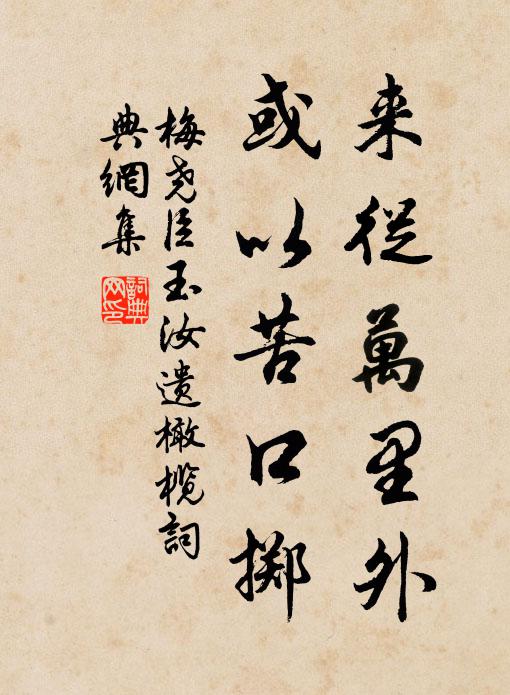 来從萬里外
或以苦口擲
梅尧臣玉汝遗橄榄詞
典網集
詞典网印